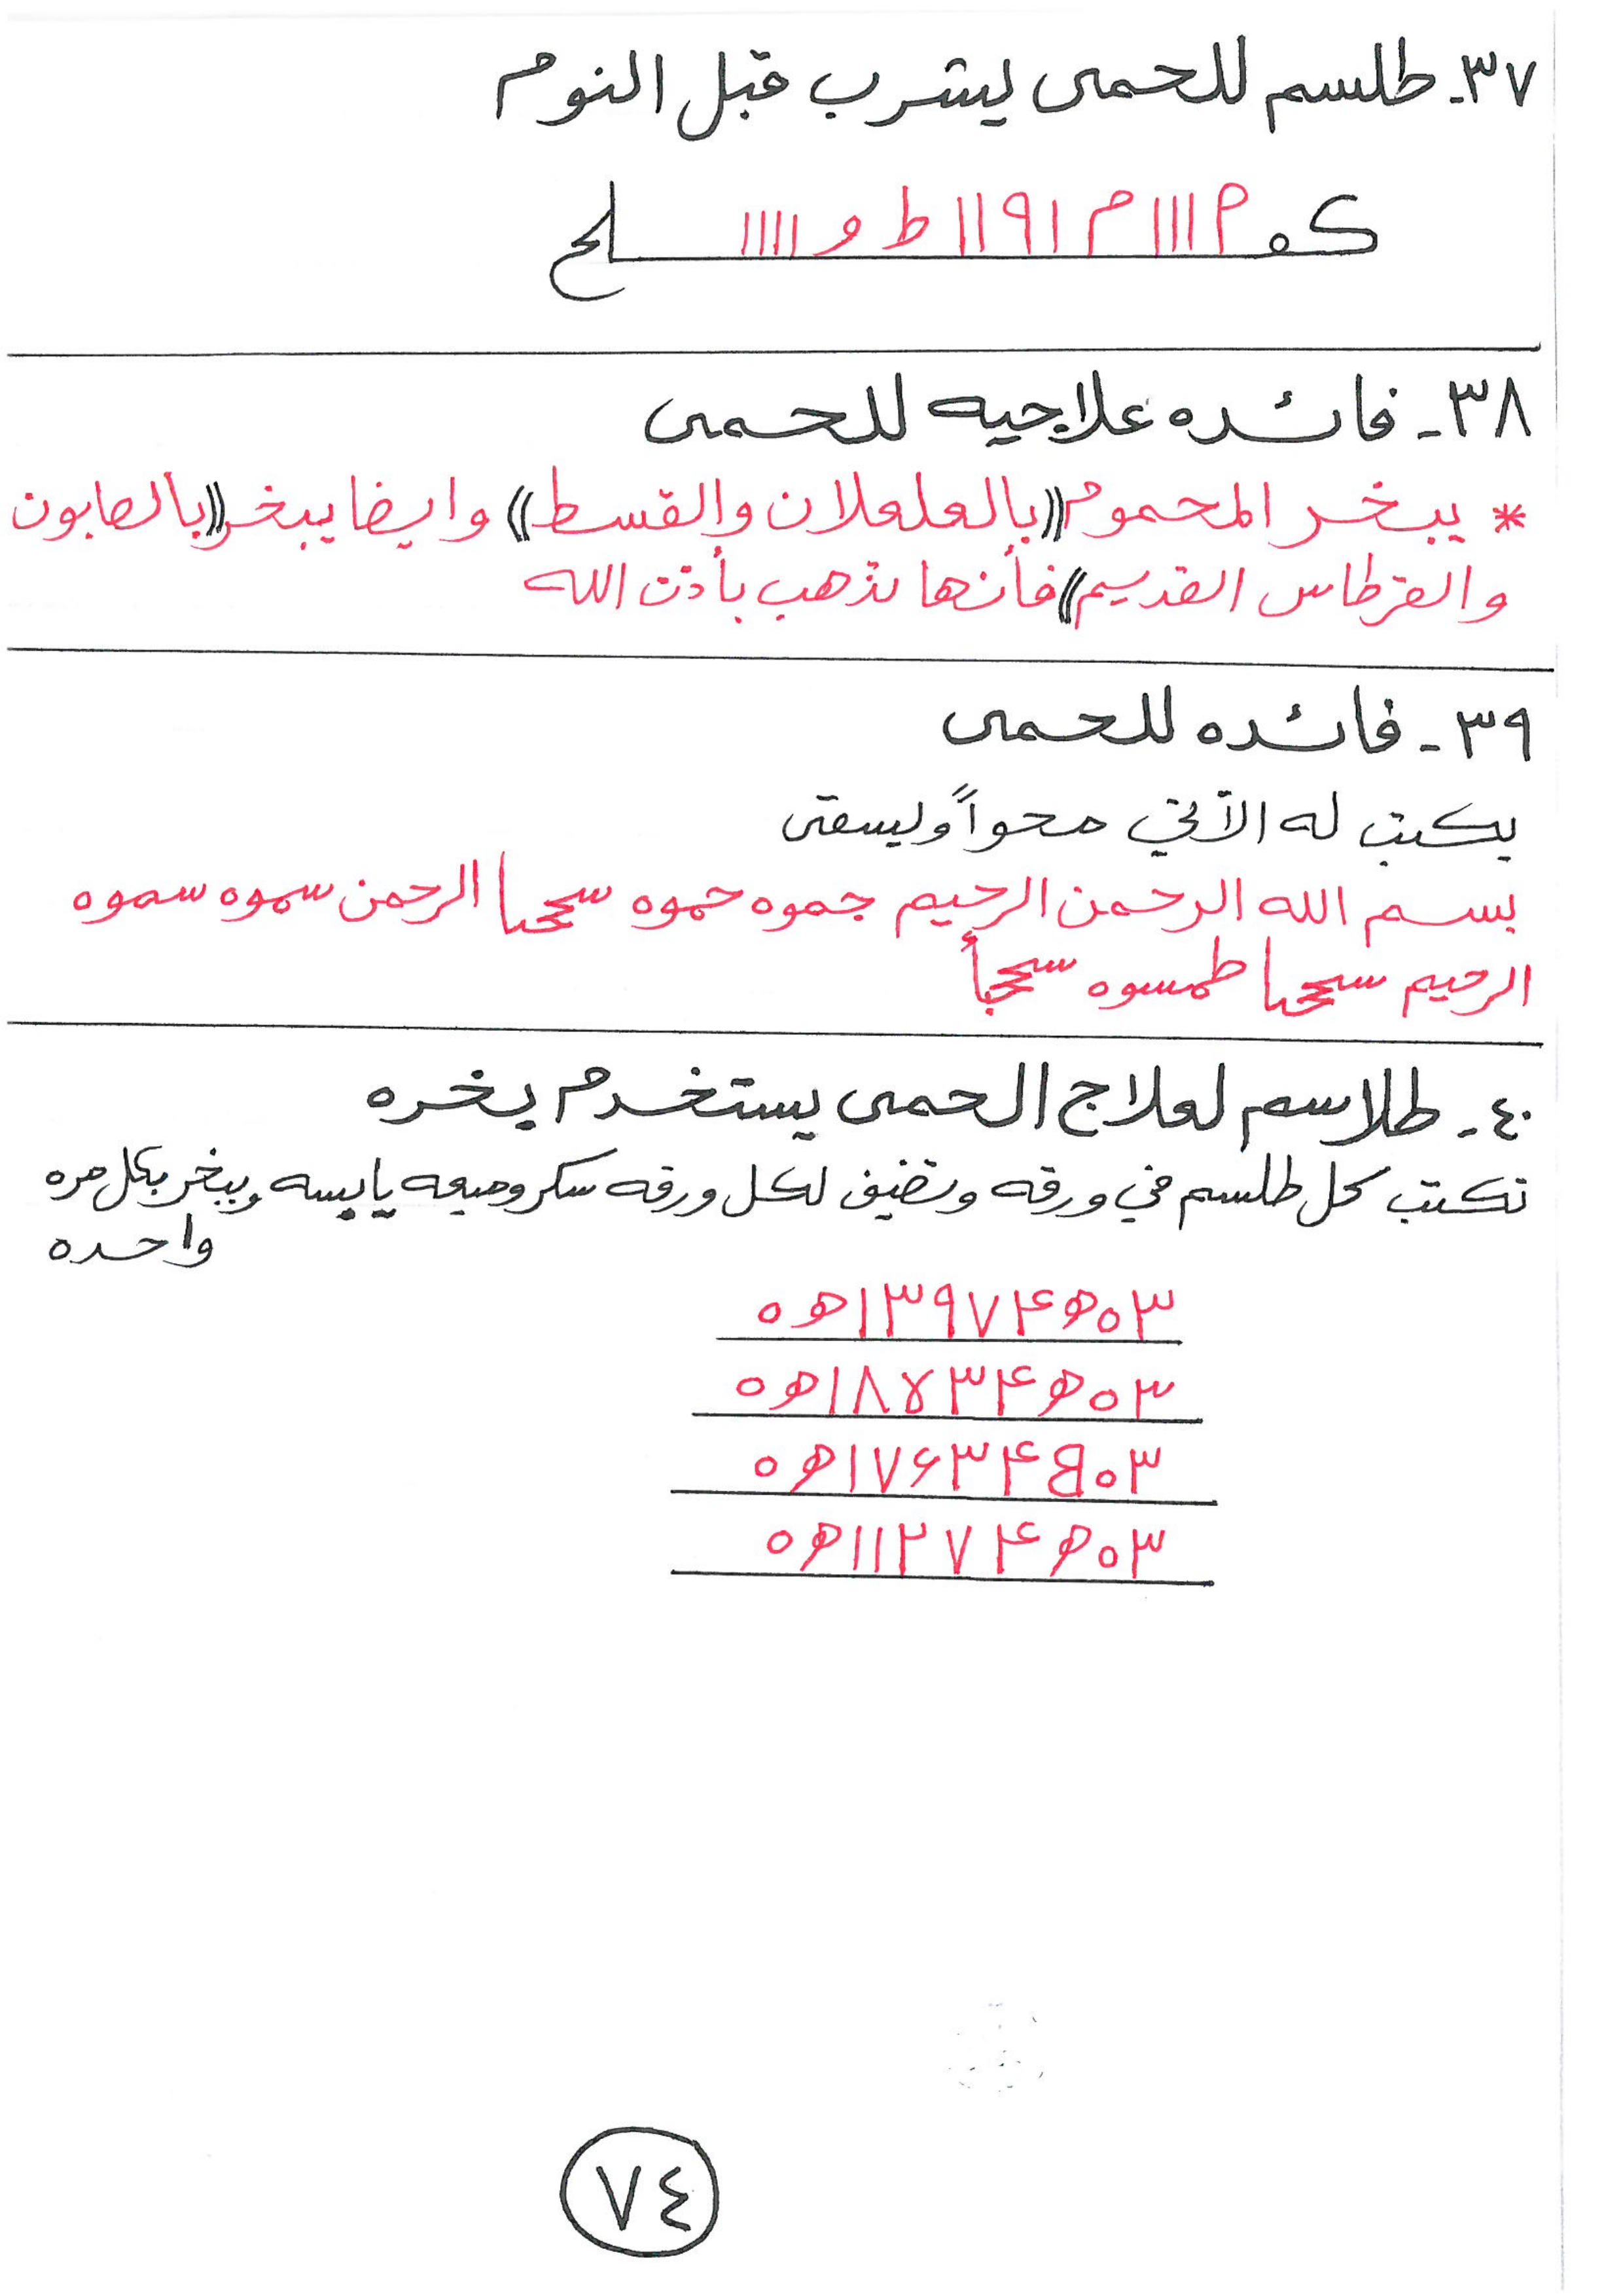 ٣٧- طلسم للحمى ليشرب قبل النوم
كہ ٩١١١م١٩١١ط و١١١١ لح
٣٨- فائده علاجيه للحمى
* يبخر المحموم ((بالعلعلان والقسط)) وايضا يبخر ((بالصابون
والقرطاس القديم)) فأنها تذهب بأذن الله
٣٩- فائده للحمى
يكتب له الآتي محواً وليسقى
بسم الله الرحمن الرحيم جموه حموه الرحمن سموه سموه
الرحيم طمسوه
٤٠- طلاسم لعلاج الحمى يستخدم بخره
تكتب كل طلسم في ورقه وتضيف لكل ورقه سكر وميعه يابسه ويبخر بكل مره
واحده
٣٥ھ۴٧٩٣١ھ٥
٣٥ھ۴٣٨١ھ٥
٣٥۴٣۶٧١ھ٥
٣٥ھ۴٧٢١١ھ٥
٧٤